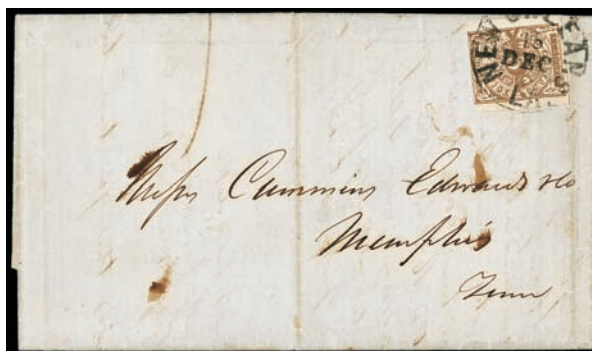 NEW ORLEANS
15
DEC
LA.
5
Messrs Cummins Edwards & Co
Memphis
Tenn